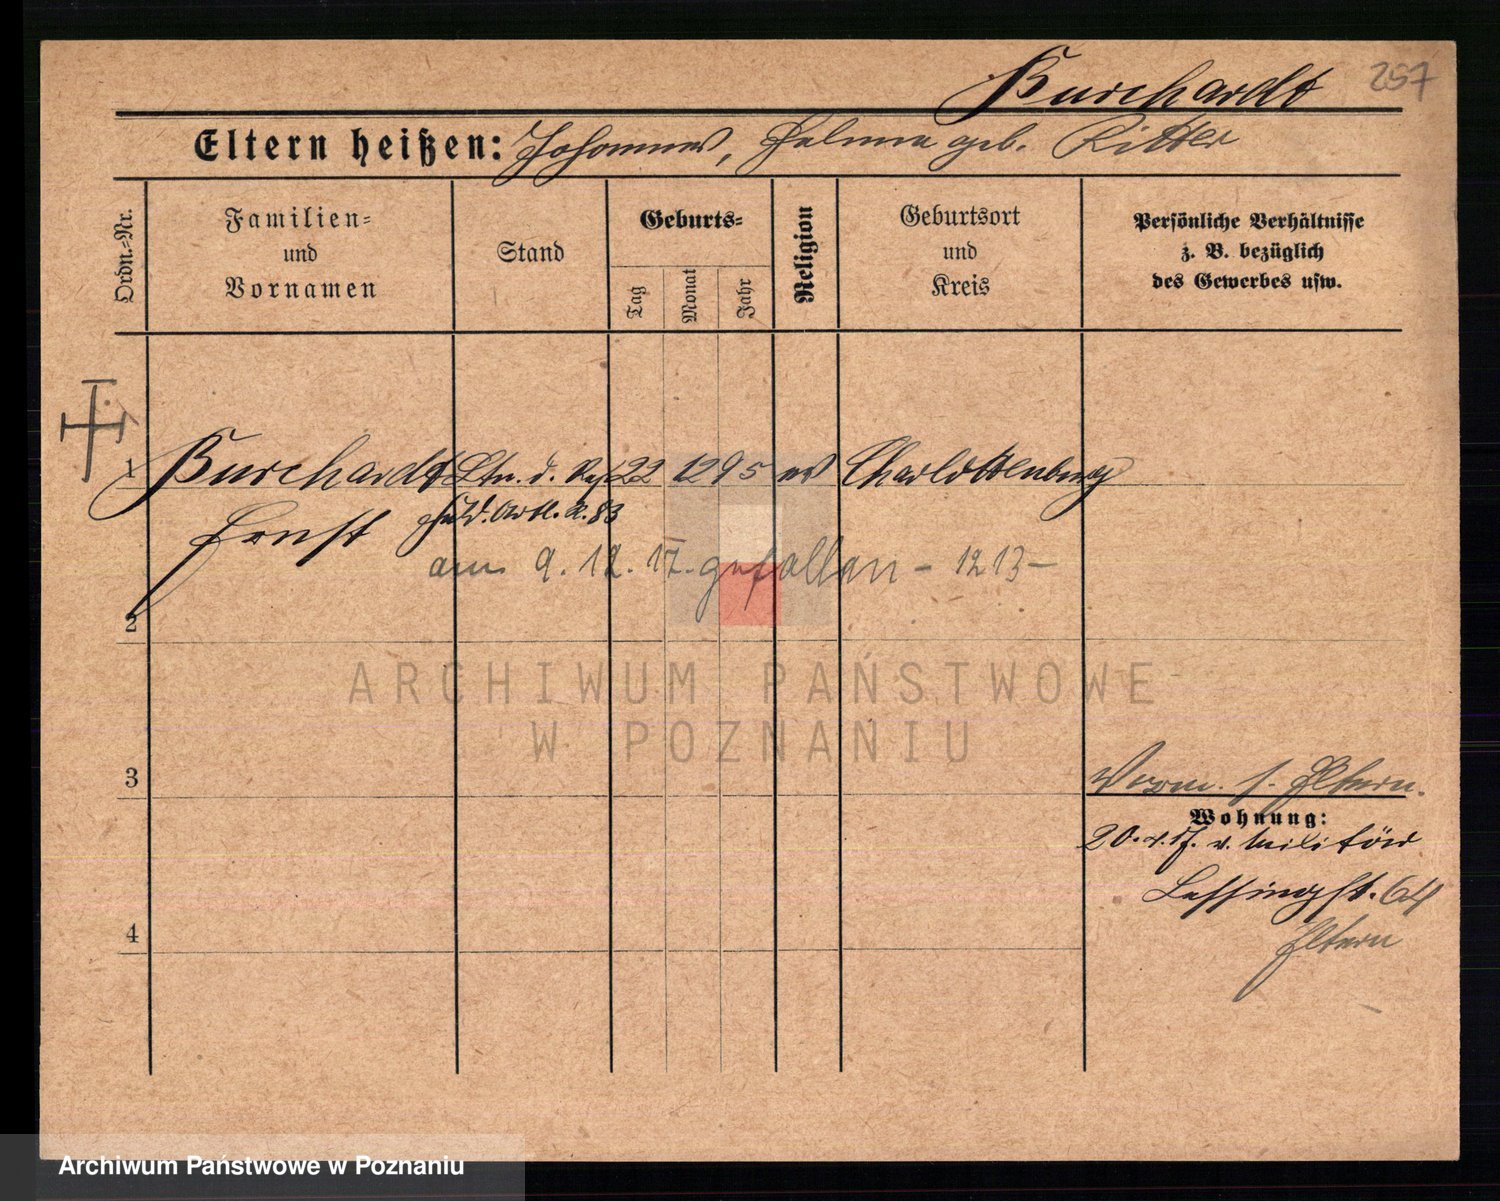 Burchardt 257
Eltern heißen: Johannes, Helma geb. Ritter
Ordn.=Nr.
Familien=
und
Vornamen
Stand
Geburts=
Tag
Monat
Jahr
Religion
Geburtsort
und
Kreis
Persönliche Verhältnisse
z. B. bezüglich
des Gewerbes usw.
1 Burchardt Ltn. d. Res 22 12 95 ev Charlottenburg
Ernst Feld. Artl. R. 83
am 9. 12. 17. gefallen - 1213 -
2
ARCHIWUM PAŃSTWOWE
W POZNANIU
3
Verm. s. Eltern.
Wohnung:
20. 17. v. Militär
Lessingst. 64
4
Eltern
Archiwum Państwowe w Poznaniu